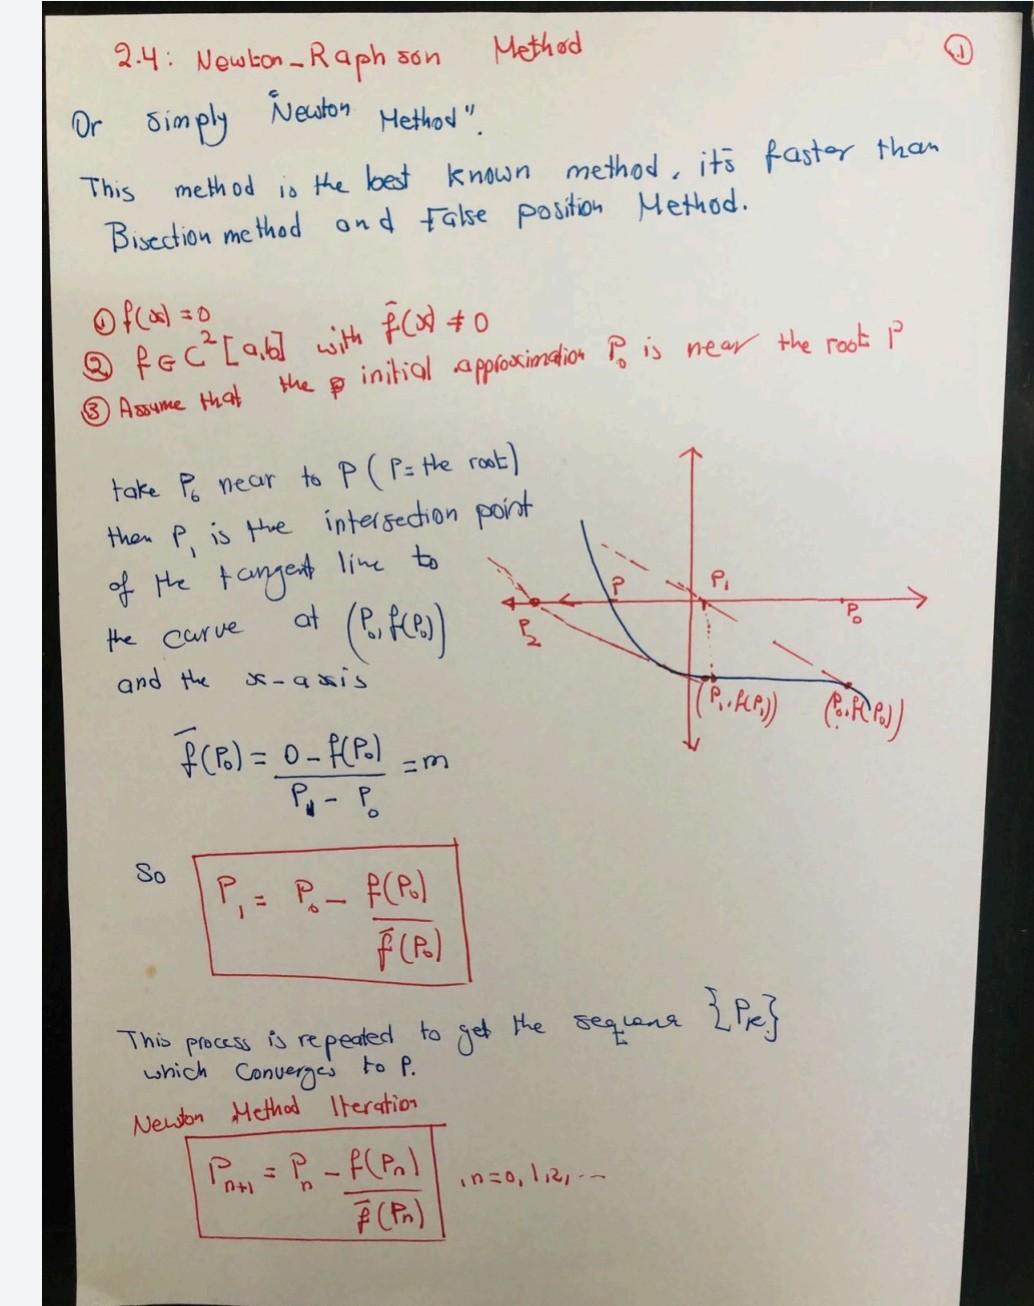 2.4: Newton-Raphson Method
1
Or simply "Newton Method".
This method is the best known method, it's faster than
Bisection method and False position Method.
① f(x) = 0
② f ∈ C² [a,b] with f̄(x) ≠ 0
③ Assume that the initial approximation P₀ is near the root P
take P₀ near to P (P = the root)
then P₁ is the intersection point
of the tangent line to
the curve at (P₀, f(P₀))
and the x-axis
P
P₁
P₀
P₂
(P₁, f(P₁))
(P₀, f(P₀))
f̄(P₀) = 0 - f(P₀) / P₁ - P₀ = m
So P₁ = P₀ - f(P₀) / f̄(P₀)
This process is repeated to get the sequence {Pₖ}
which Converges to P.
Newton Method Iteration
Pₙ₊₁ = Pₙ - f(Pₙ) / f̄(Pₙ) , n=0, 1, 2, ...